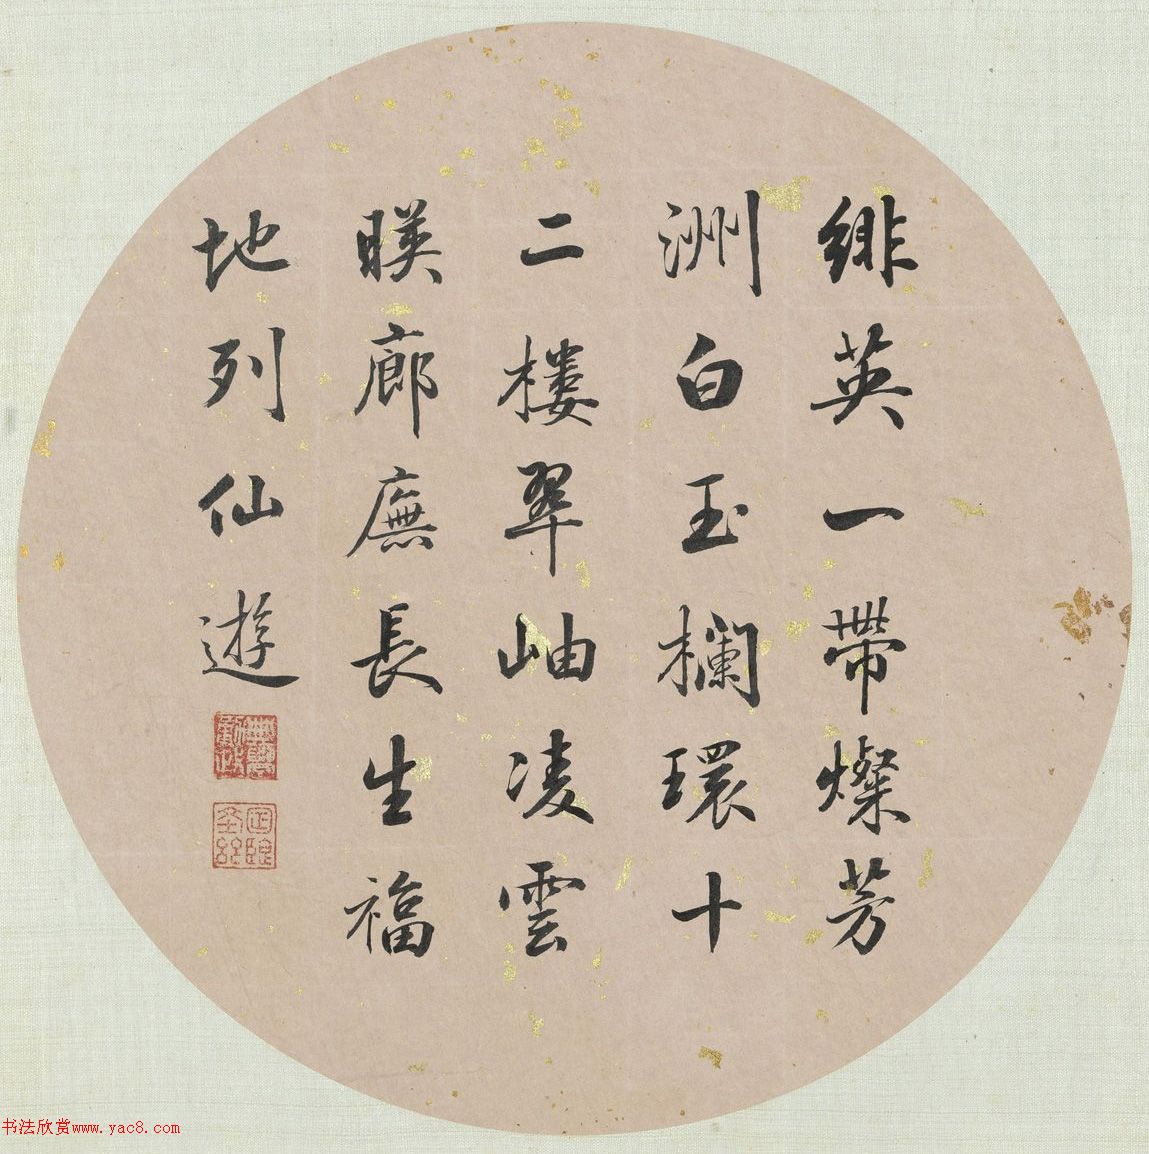 緋英一帶燦芳
洲白玉欄環十
二樓翠岫凌雲
暎廊廡長生福
地列仙遊
书法欣赏www.yac8.com